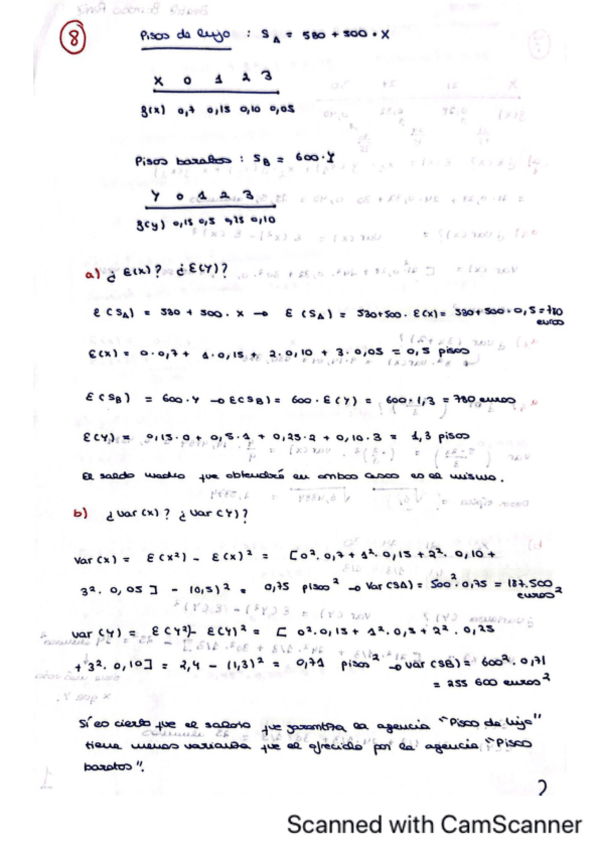 8
Pisos de lujo : S_A = 530 + 500 · X
X 0 1 2 3
g(x) 0,7 0,15 0,10 0,05
Pisos baratos : S_B = 600·Y
Y 0 1 2 3
g(y) 0,15 0,5 0,25 0,10
a) ¿ E(X)? ¿ E(Y)?
E(S_A) = 530 + 500 · X → E(S_A) = 530+500 · E(X) = 530+500·0,5 = 780
euros
E(X) = 0·0,7 + 1·0,15 + 2·0,10 + 3·0,05 = 0,5 pisos
E(S_B) = 600·Y → E(S_B) = 600·E(Y) = 600·1,3 = 780 euros
E(Y) = 0,15·0 + 0,5·1 + 0,25·2 + 0,10·3 = 1,3 pisos
El saldo medio que obtendrá en ambos casos es el mismo.
b) ¿ Var (X)? ¿ Var (Y)?
Var (X) = E(X²) - E(X)² = [0²·0,7 + 1²·0,15 + 2²·0,10 +
3²·0,05] - (0,5)² = 0,75 pisos² → Var (SA) = 500²·0,75 = 187.500
euros²
Var (Y) = E(Y²) - E(Y)² = [0²·0,15 + 1²·0,5 + 2²·0,25
+ 3²·0,10] = 2,4 - (1,3)² = 0,71 pisos² → Var (SB) = 600²·0,71
= 255 600 euros²
Sí es cierto que el salario que garantiza la agencia "Pisos de lujo"
tiene menos varianza que el ofrecido por la agencia "Pisos
baratos".
Scanned with CamScanner